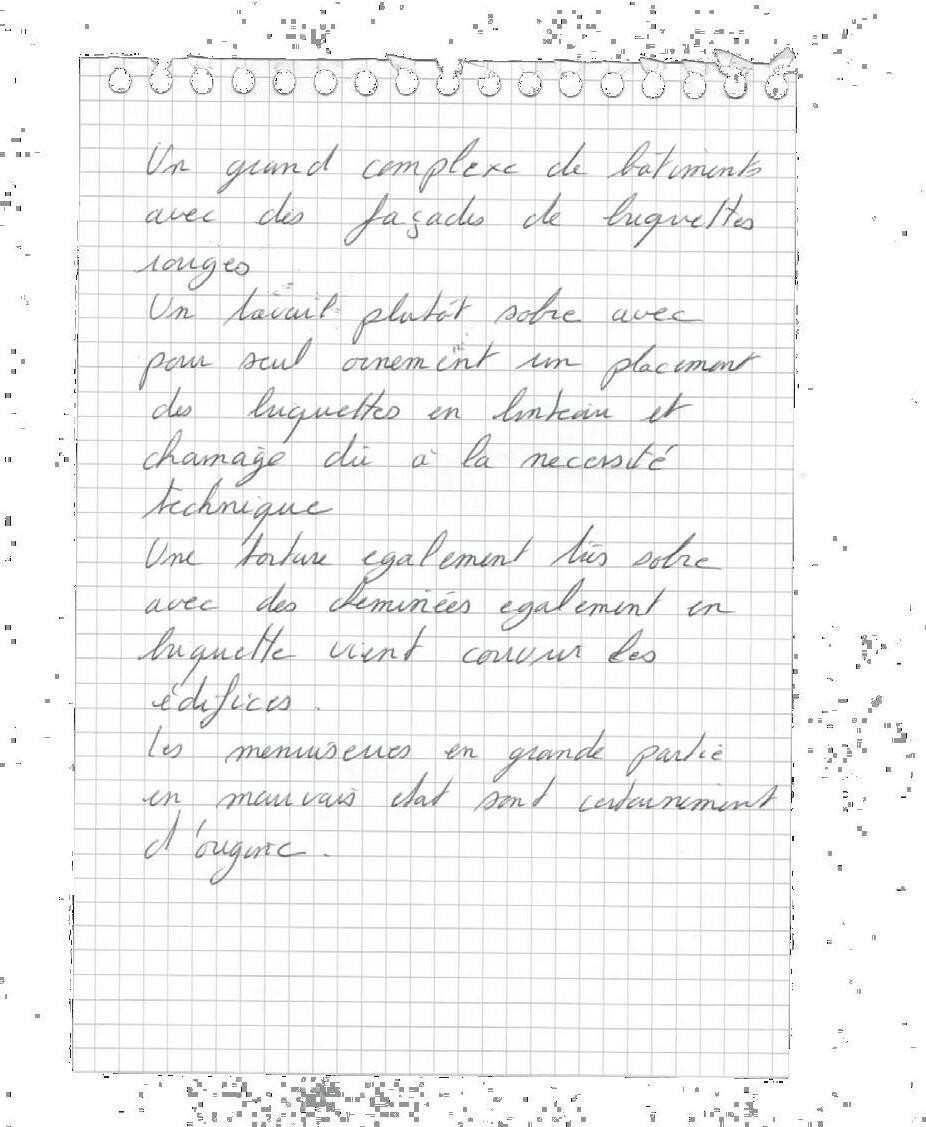 Un grand complexe de bâtiments
avec des façades de briquettes
rouges
Un travail plutôt sobre avec
pour seul ornement un placement
des briquettes en linteau et
chainage dû à la necessité
technique
Une toiture egalement très sobre
avec des cheminées egalement en
briquette vient couvrir les
édifices.
Les menuiseries en grande partie
en mauvais etat sont certainement
d'origine.